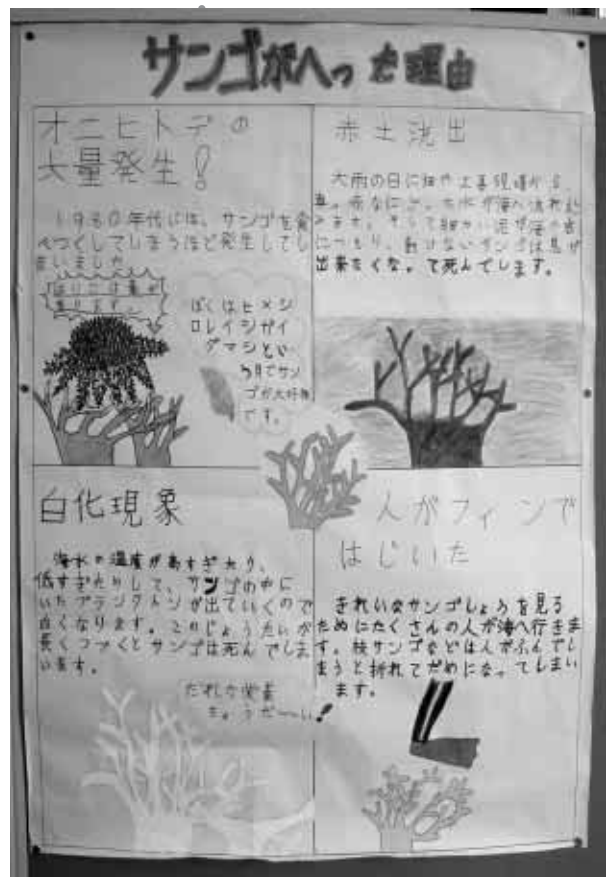 サンゴがへった理由
オニヒトデの
大量発生!
1980年代には、サンゴを食
べつくしてしまうほど発生してし
まいました
ぼくはヒメシ
ロレイシガイ
ダマシとい
う貝でサン
ゴが大好物
です。
赤土流出
大雨の日に畑や工事現場から、
出来なくなって死んでします。
白化現象
海水の温度が高すぎたり、
低すぎたりして、サンゴの中に
いたプランクトンが出ていくので
白くなります。このじょうたいが
長くつづくとサンゴは死んでしま
います。
だれか栄養
ちょうだーい!
人がフィンで
はじいた
きれいなサンゴしょうを見る
ためにたくさんの人が海へ行きま
す。枝サンゴなどは人がふんでし
まうと折れてだめになってしまい
ます。